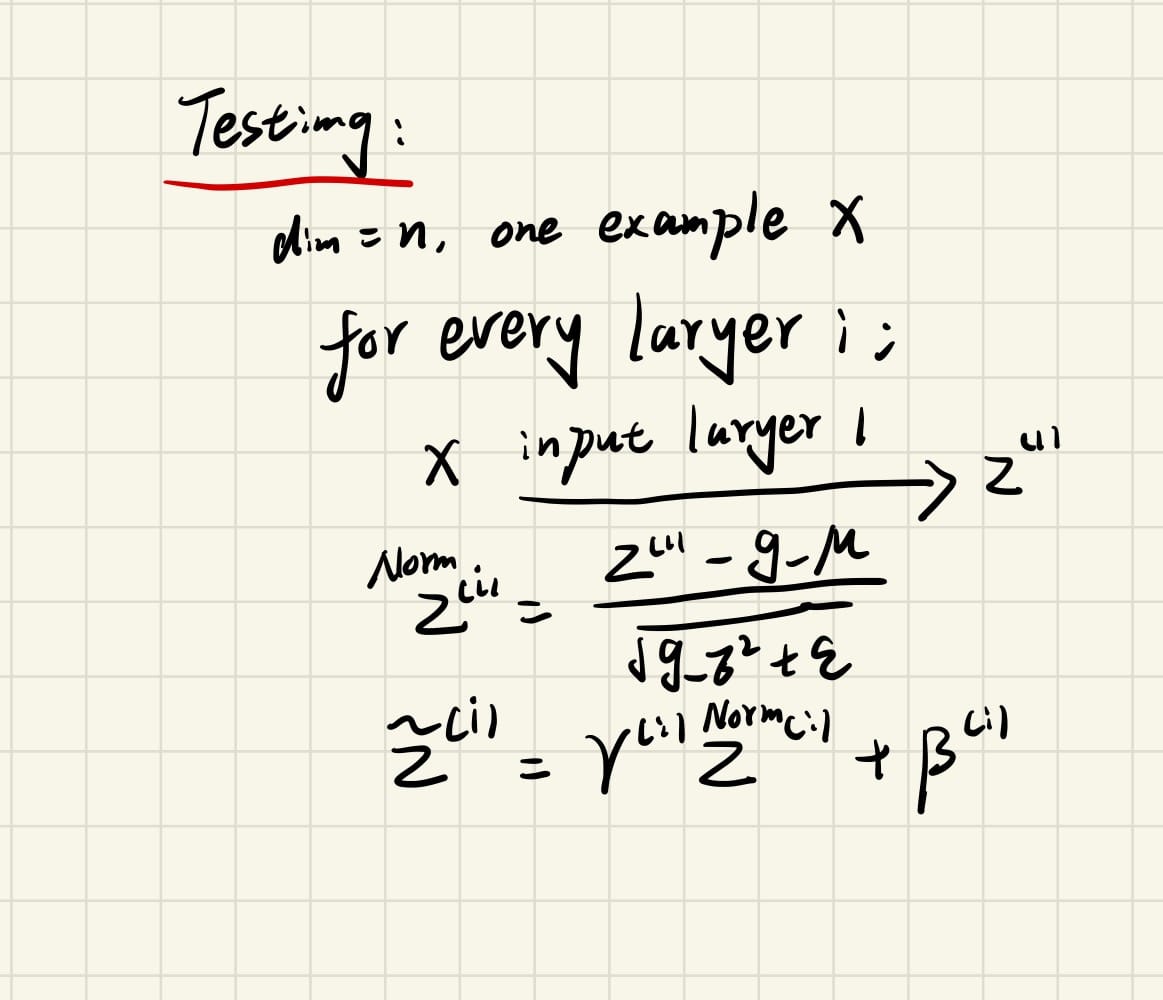 Testimg:
dim = n, one example X
for every laryer i;
X input laryer 1 → Z^(1)
Norm Z^(i) = (Z^(1) - g_μ) / √(g_σ² + ε)
Z̃^(i) = γ^(i) Norm Z^(i) + β^(i)